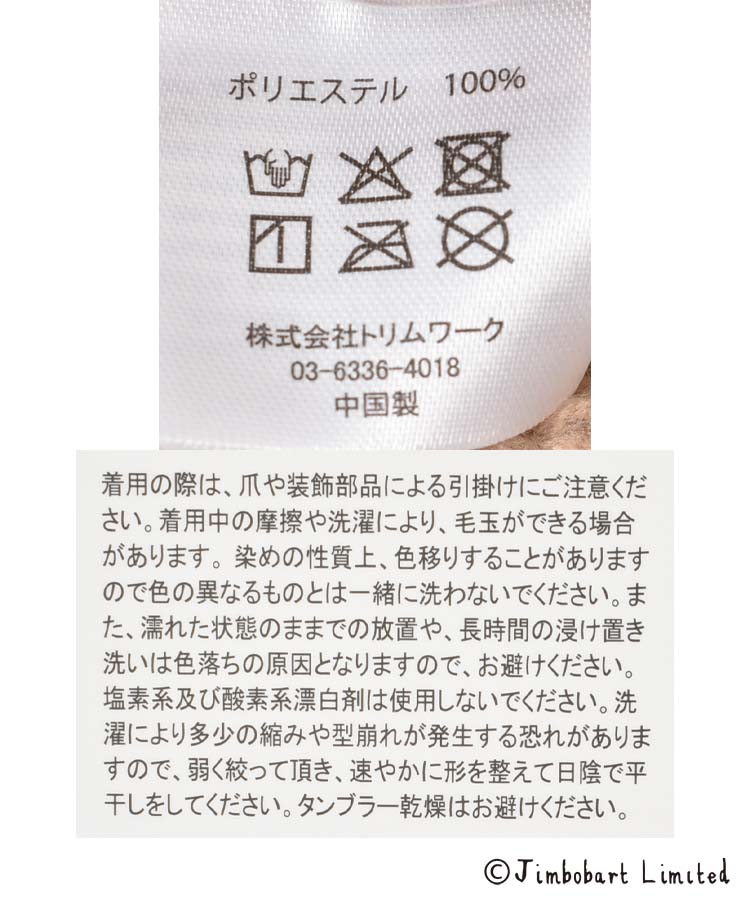 ポリエステル 100%
株式会社トリムワーク
03-6336-4018
中国製
着用の際は、爪や装飾部品による引掛けにご注意くだ
さい。着用中の摩擦や洗濯により、毛玉ができる場合
があります。染めの性質上、色移りすることがあります
ので色の異なるものとは一緒に洗わないでください。ま
た、濡れた状態のままでの放置や、長時間の浸け置き
洗いは色落ちの原因となりますので、お避けください。
塩素系及び酸素系漂白剤は使用しないでください。洗
濯により多少の縮みや型崩れが発生する恐れがありま
すので、弱く絞って頂き、速やかに形を整えて日陰で平
干しをしてください。タンブラー乾燥はお避けください。
©Jimbobart Limited